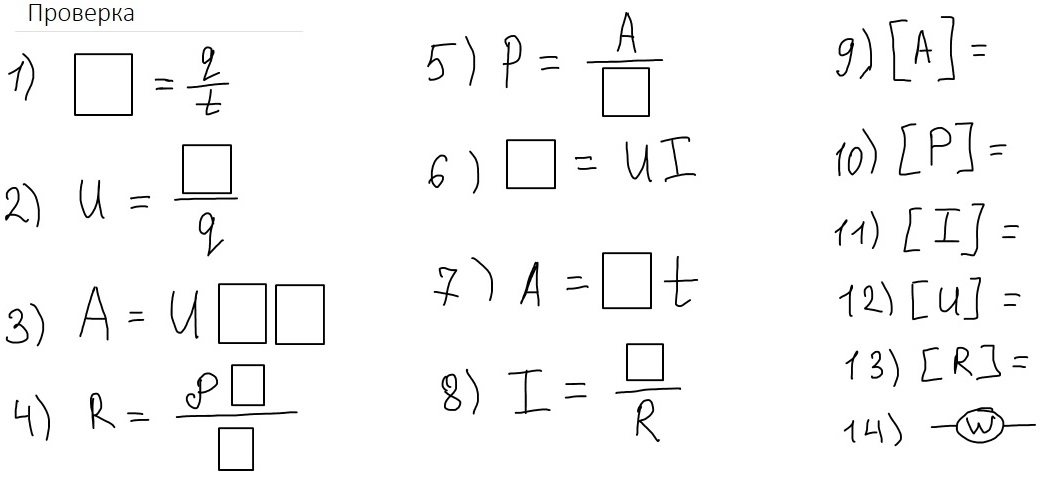 Проверка
1) □ = q/t
2) U = □/q
3) A = U □ □
4) R = ρ □/□
5) P = A/□
6) □ = U I
7) A = □ t
8) I = □/R
9) [A] =
10) [P] =
11) [I] =
12) [U] =
13) [R] =
14) W